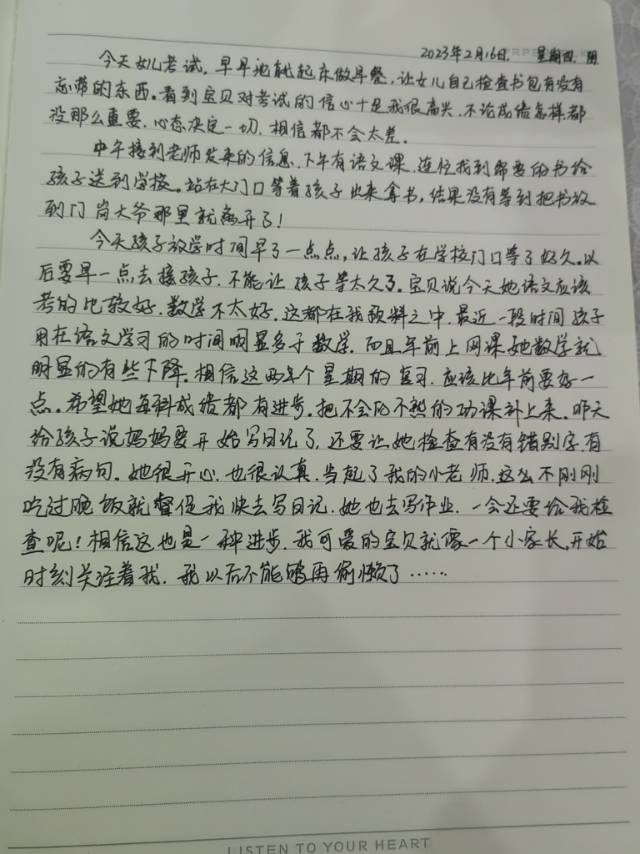 2023年2月16日. 星期四. 阴
今天女儿考试，早早地就起床做早餐，让女儿自己检查书包有没有
忘带的东西。看到宝贝对考试的信心十足我很高兴，不论成绩怎样都
没那么重要，心态决定一切，相信都不会太差。
中午接到老师发来的信息，下午有语文课，连忙找到需要的书给
孩子送到学校。站在大门口等着孩子出来拿书，结果没有等到把书放
到门岗大爷那里就离开了！
今天孩子放学时间早了一点点，让孩子在学校门口等了好久。以
后要早一点去接孩子，不能让孩子等太久了。宝贝说今天她语文应该
考的比较好，数学不太好。这都在我预料之中，最近一段时间孩子
用在语文学习的时间明显多于数学，而且年前上网课她数学就
明显的有些下降。相信这两个星期的复习，应该比年前要好一
点。希望她每科成绩都有进步。把不会的不熟的功课补上来。昨天
给孩子说妈妈要开始写日记了，还要让她检查有没有错别字，有
没有病句。她很开心，也很认真，当起了我的小老师，这么不刚刚
吃过晚饭就督促我快去写日记，她也去写作业，一会还要给我检
查呢！相信这也是一种进步，我可爱的宝贝就像一个小家长，开始
时刻关注着我，我以后不能够再偷懒了……
LISTEN TO YOUR HEART